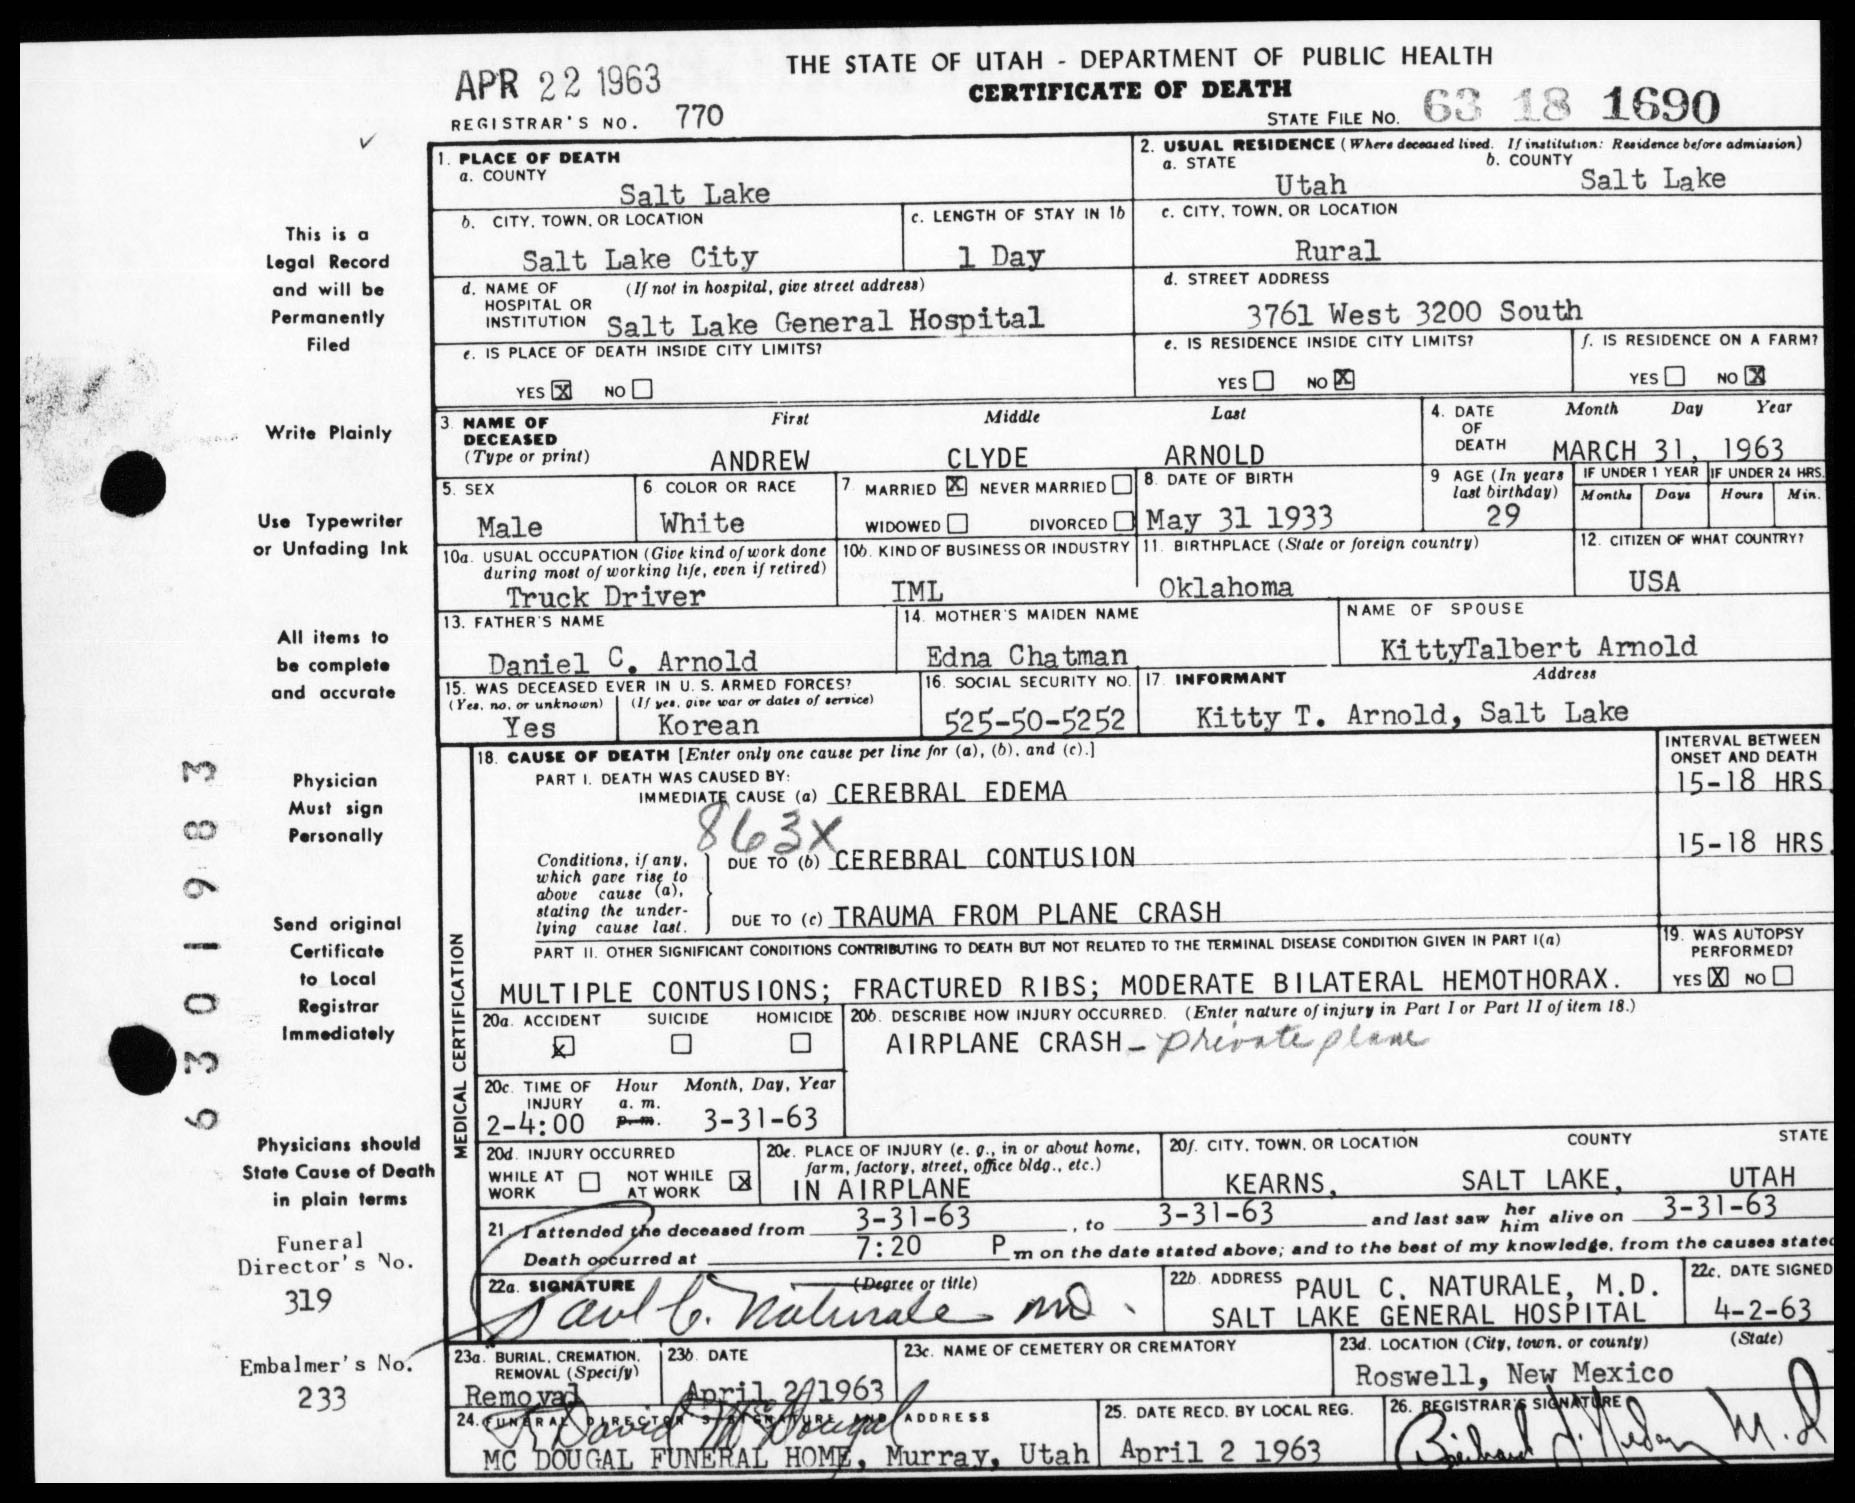 THE STATE OF UTAH - DEPARTMENT OF PUBLIC HEALTH
APR 22 1963
CERTIFICATE OF DEATH
REGISTRAR'S NO. 770
STATE FILE NO. 63 18 1690
This is a
Legal Record
and will be
Permanently
Filed
Write Plainly
Use Typewriter
or Unfading Ink
All items to
be complete
and accurate
Physician
Must sign
Personally
Send original
Certificate
to Local
Registrar
Immediately
Physicians should
State Cause of Death
in plain terms
Funeral
Director's No.
319
Embalmer's No.
233
6301983
1. PLACE OF DEATH
a. COUNTY
Salt Lake
2. USUAL RESIDENCE (Where deceased lived. If institution: Residence before admission)
a. STATE
Utah
b. COUNTY
Salt Lake
b. CITY, TOWN, OR LOCATION
Salt Lake City
c. LENGTH OF STAY IN 1b
1 Day
c. CITY, TOWN, OR LOCATION
Rural
d. NAME OF HOSPITAL OR INSTITUTION (If not in hospital, give street address)
Salt Lake General Hospital
d. STREET ADDRESS
3761 West 3200 South
e. IS PLACE OF DEATH INSIDE CITY LIMITS?
YES X NO
e. IS RESIDENCE INSIDE CITY LIMITS?
YES NO X
f. IS RESIDENCE ON A FARM?
YES NO X
3. NAME OF DECEASED (Type or print)
First Middle Last
ANDREW CLYDE ARNOLD
4. DATE OF DEATH Month Day Year
MARCH 31, 1963
5. SEX
Male
6. COLOR OR RACE
White
7. MARRIED X NEVER MARRIED
WIDOWED DIVORCED
8. DATE OF BIRTH
May 31 1933
9 AGE (In years last birthday)
29
IF UNDER 1 YEAR
Months Days
IF UNDER 24 HRS.
Hours Min.
10a. USUAL OCCUPATION (Give kind of work done during most of working life, even if retired)
Truck Driver
10b. KIND OF BUSINESS OR INDUSTRY
IML
11. BIRTHPLACE (State or foreign country)
Oklahoma
12. CITIZEN OF WHAT COUNTRY?
USA
13. FATHER'S NAME
Daniel C. Arnold
14. MOTHER'S MAIDEN NAME
Edna Chatman
NAME OF SPOUSE
KittyTalbert Arnold
15. WAS DECEASED EVER IN U. S. ARMED FORCES?
(Yes, no, or unknown) (If yes, give war or dates of service)
Yes Korean
16. SOCIAL SECURITY NO.
525-50-5252
17. INFORMANT Address
Kitty T. Arnold, Salt Lake
MEDICAL CERTIFICATION
18. CAUSE OF DEATH [Enter only one cause per line for (a), (b), and (c).]
INTERVAL BETWEEN ONSET AND DEATH
PART I. DEATH WAS CAUSED BY:
IMMEDIATE CAUSE (a) CEREBRAL EDEMA
15-18 HRS.
863X
Conditions, if any, which gave rise to above cause (a), stating the underlying cause last.
DUE TO (b) CEREBRAL CONTUSION
15-18 HRS.
DUE TO (c) TRAUMA FROM PLANE CRASH
PART II. OTHER SIGNIFICANT CONDITIONS CONTRIBUTING TO DEATH BUT NOT RELATED TO THE TERMINAL DISEASE CONDITION GIVEN IN PART I(a)
MULTIPLE CONTUSIONS; FRACTURED RIBS; MODERATE BILATERAL HEMOTHORAX.
19. WAS AUTOPSY PERFORMED?
YES X NO
20a. ACCIDENT SUICIDE HOMICIDE
X
20b. DESCRIBE HOW INJURY OCCURRED. (Enter nature of injury in Part I or Part II of item 18.)
AIRPLANE CRASH - private plane
20c. TIME OF INJURY Hour a. m. p. m. Month, Day, Year
2-4:00 3-31-63
20d. INJURY OCCURRED
WHILE AT WORK NOT WHILE AT WORK X
20e. PLACE OF INJURY (e. g., in or about home, farm, factory, street, office bldg., etc.)
IN AIRPLANE
20f. CITY, TOWN, OR LOCATION COUNTY STATE
KEARNS, SALT LAKE, UTAH
21. I attended the deceased from 3-31-63, to 3-31-63 and last saw her him alive on 3-31-63
Death occurred at 7:20 P m on the date stated above; and to the best of my knowledge, from the causes stated
22a. SIGNATURE (Degree or title)
Paul C. Naturale MD.
22b. ADDRESS PAUL C. NATURALE, M.D.
SALT LAKE GENERAL HOSPITAL
22c. DATE SIGNED
4-2-63
23a. BURIAL, CREMATION, REMOVAL (Specify)
Removal
23b. DATE
April 2 1963
23c. NAME OF CEMETERY OR CREMATORY
23d. LOCATION (City, town, or county) (State)
Roswell, New Mexico
24. FUNERAL DIRECTOR'S SIGNATURE AND ADDRESS
David McDougal
MC DOUGAL FUNERAL HOME, Murray, Utah
25. DATE RECD. BY LOCAL REG.
April 2 1963
26. REGISTRAR'S SIGNATURE
M.D.